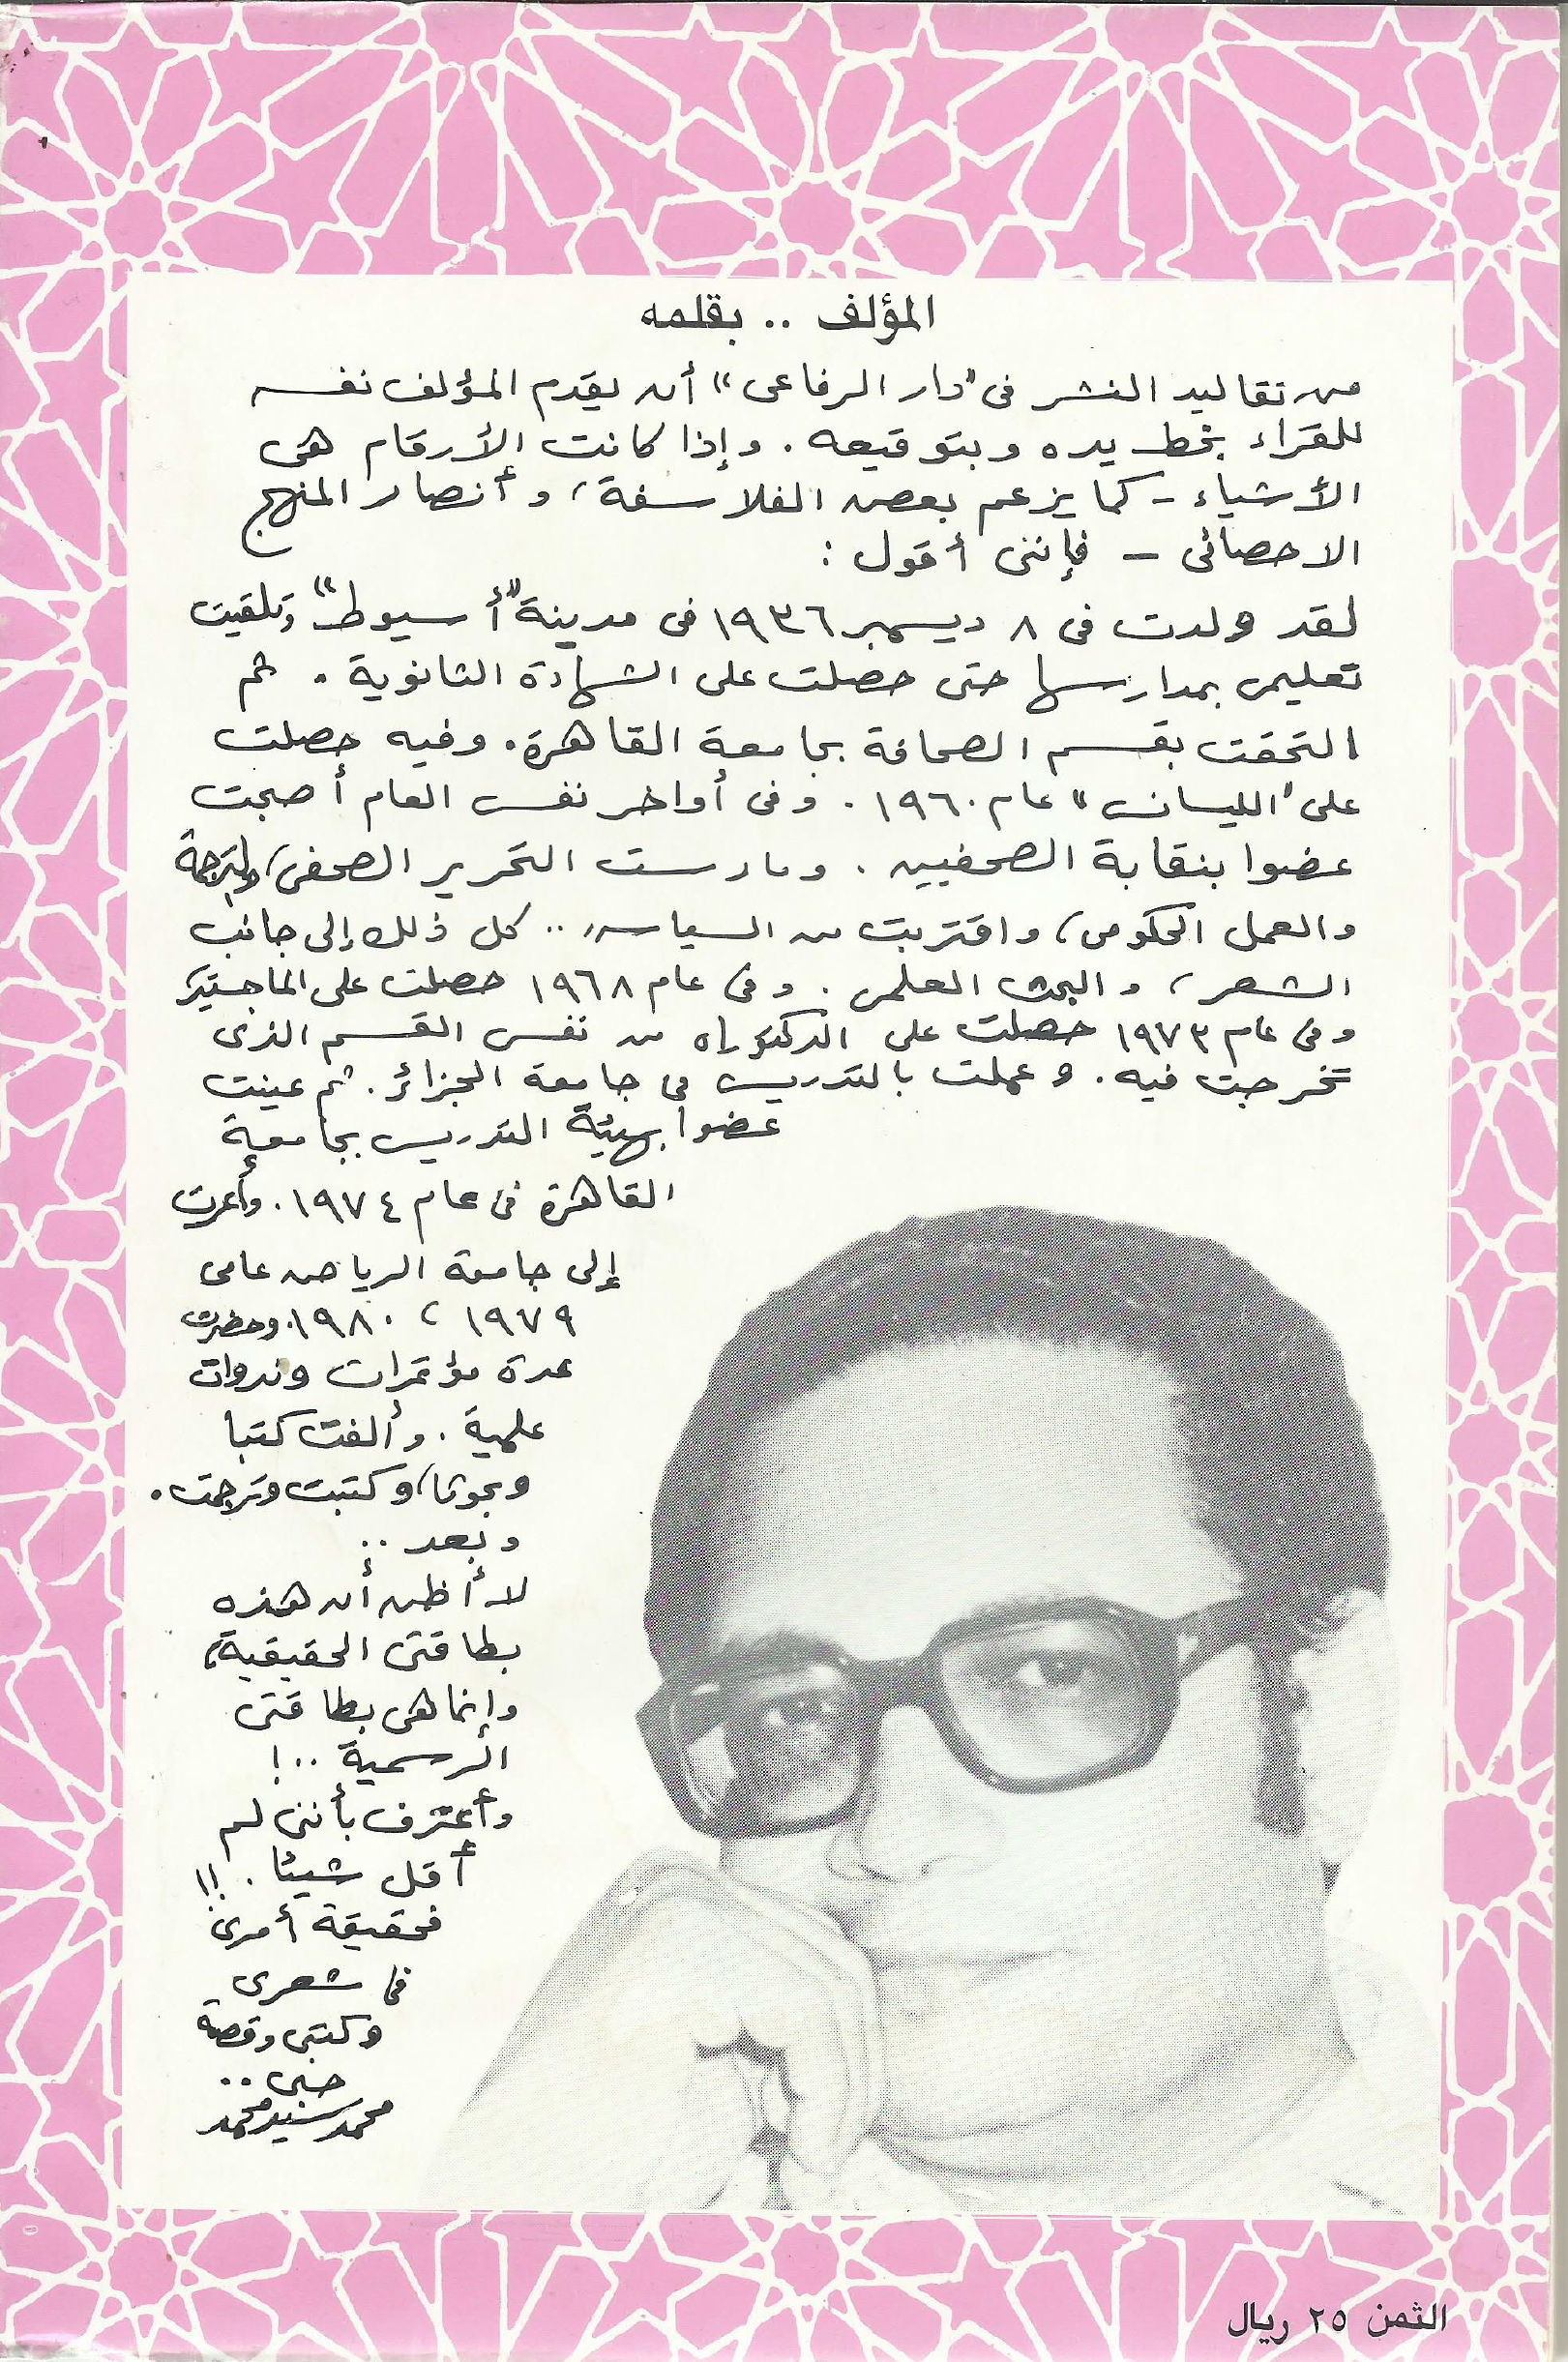 المؤلف .. بقلمه
من تقاليد النشر فى "دار الرفاعى" أن يقدم المؤلف نفسه
للقراء بخط يده وبتوقيعه . وإذا كانت الأرقام هى
الأشياء - كما يزعم بعض الفلاسفة ، وأنصار المنهج
الاحصائى - فإننى أقول :
لقد ولدت فى ٨ ديسمبر ١٩٣٦ فى مدينة "أسيوط" وتلقيت
تعليمى بمدارسها حتى حصلت على الشهادة الثانوية . ثم
التحقت بقسم الصحافة بجامعة القاهرة . وفيه حصلت
على "الليسانس" عام ١٩٦٠ . وفى أواخر نفس العام أصبحت
عضوا بنقابة الصحفيين . ومارست التحرير الصحفى ، والترجمة
والعمل الحكومى ، واقتربت من السياسة .. كل ذلك إلى جانب
الشعر ، والبحث العلمى . وفى عام ١٩٦٨ حصلت على الماجستير
وفى عام ١٩٧٣ حصلت على الدكتوراه من نفس القسم الذى
تخرجت فيه . وعملت بالتدريس فى جامعة الجزائر . ثم عينت
عضوا بهيئة التدريس بجامعة
القاهرة فى عام ١٩٧٤ . وأعرت
إلى جامعة الرياض عامى
١٩٧٩ ، ١٩٨٠ . وحضرت
عدة مؤتمرات وندوات
علمية . وألفت كتبا
وبحوثا ، وكتبت وترجمت .
وبعد ..
لا أظن أن هذه
بطاقتى الحقيقية ،
وإنما هى بطاقتى
الرسمية .. !
وأعترف بأننى لم
أقل شيئا . !!
فحقيقة أمرى
فى شعرى
وكتبى وقصة
حبى ..
محمد سيد محمد
الثمن ٢٥ ريال